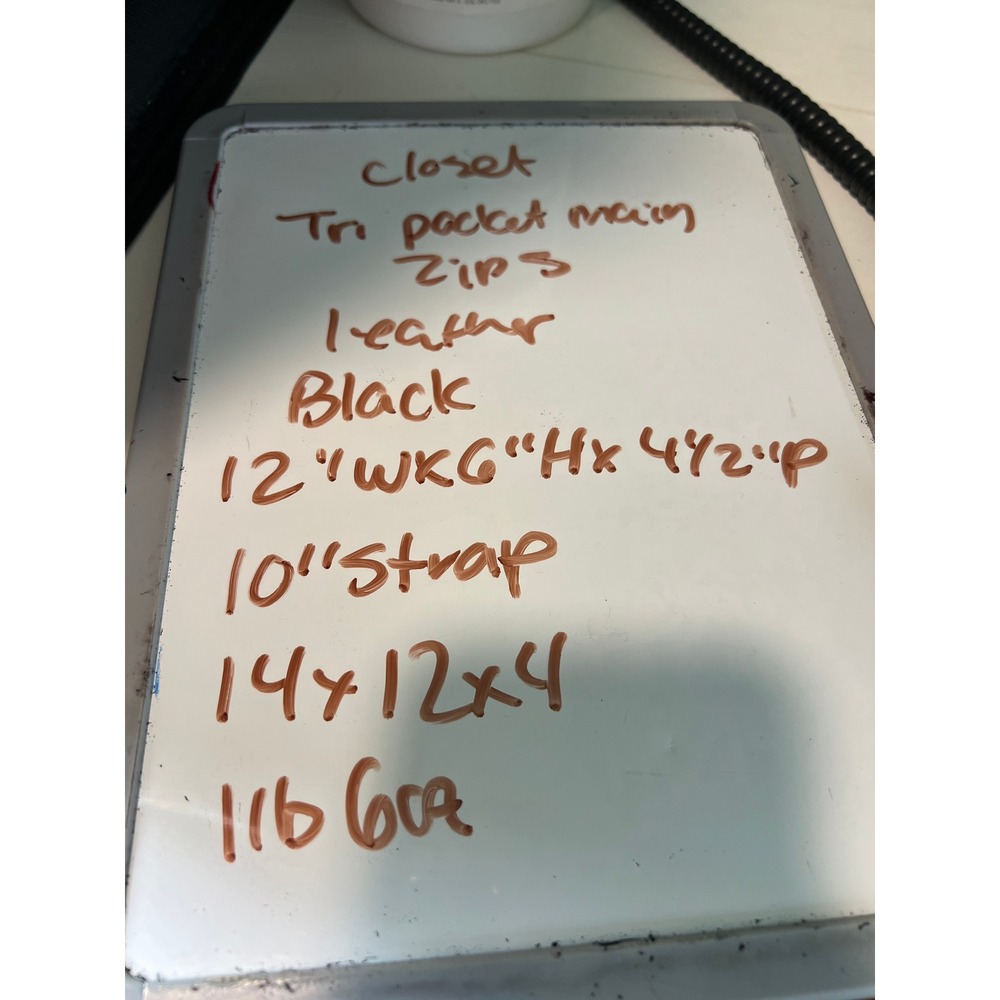 closet
Tri pocket main
Zips
leather
Black
12"WX6"HX 4 1/2"D
10"Strap
14x12x4
1lb 6oz